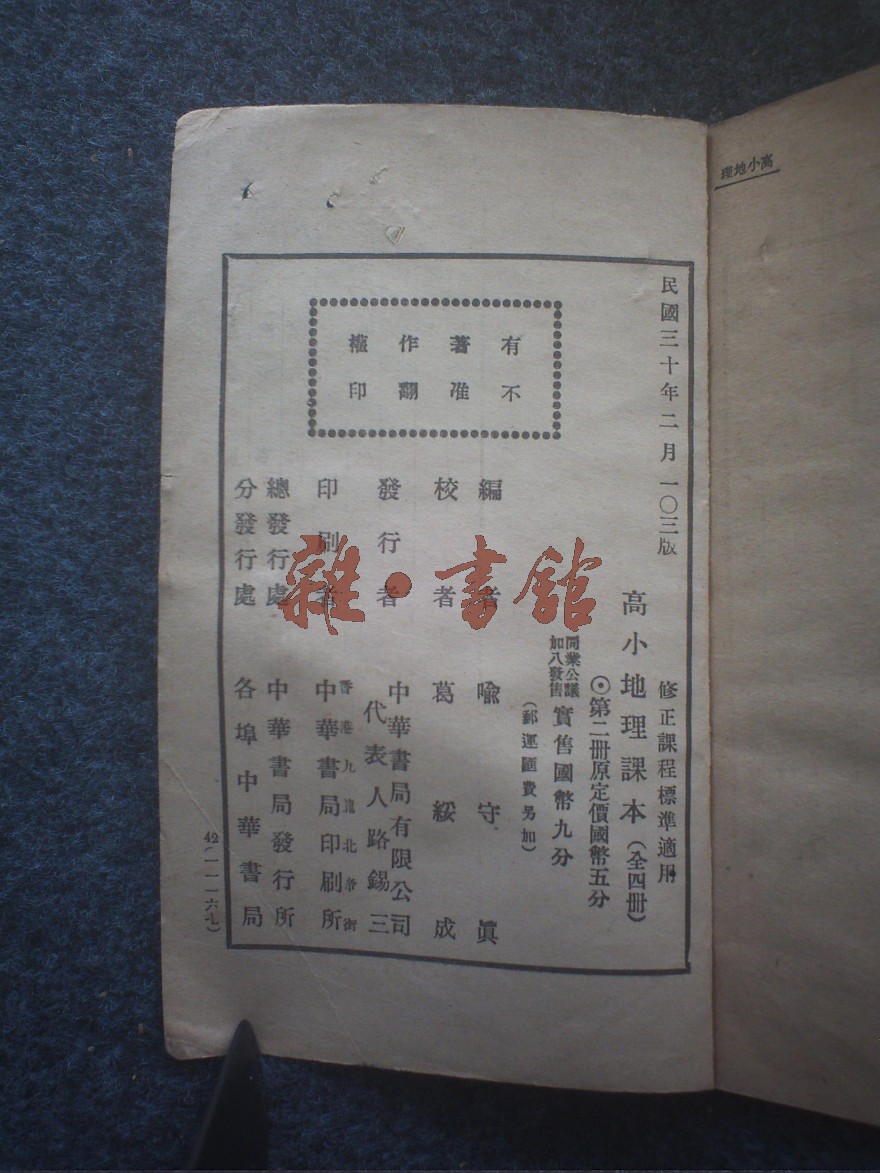 高小地理
民國三十年二月一〇三版
修正課程標準適用
高小地理課本（全四冊）
⊙第二冊原定價國幣五分
同業公議
加八發售
實售國幣九分
（郵運匯費另加）
有著作權
不准翻印
編者 喻守眞
校者 葛綏成
發行者 中華書局有限公司
代表人路錫三
印刷者 香港九龍北帝街
中華書局印刷所
總發行處 中華書局發行所
分發行處 各埠中華書局
42（一一一六七）
雜·書館